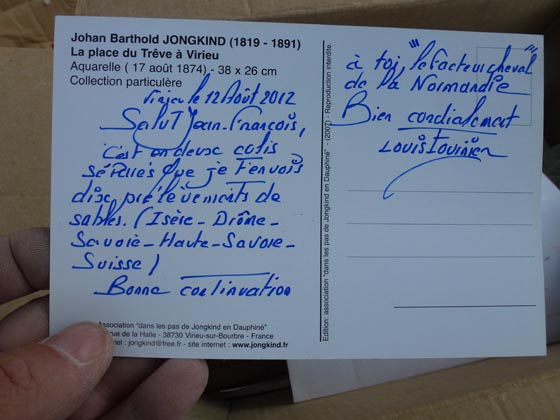 Johan Barthold JONGKIND (1819 - 1891)
La place du Trêve à Virieu
Aquarelle ( 17 août 1874) - 38 x 26 cm
Collection particulère
Virieu le 12 Août 2012
Salut Jean-François,
C'est en deux colis
séparés que je t'envois
dix prélèvements de
sables. (Isère - Drôme -
Savoie - Haute-Savoie -
Suisse)
Bonne continuation
Association "dans les pas de Jongkind en Dauphiné"
rue de la Halle - 38730 Virieu-sur-Bourbre - France
riel : jongkind@free.fr - site internet : www.jongkind.fr
Edition: association "dans les pas de Jongkind en Dauphiné" - (2007) - Reproduction interdite.
à toi, "le facteur cheval"
de la Normandie
Bien cordialement
Louis Tournier